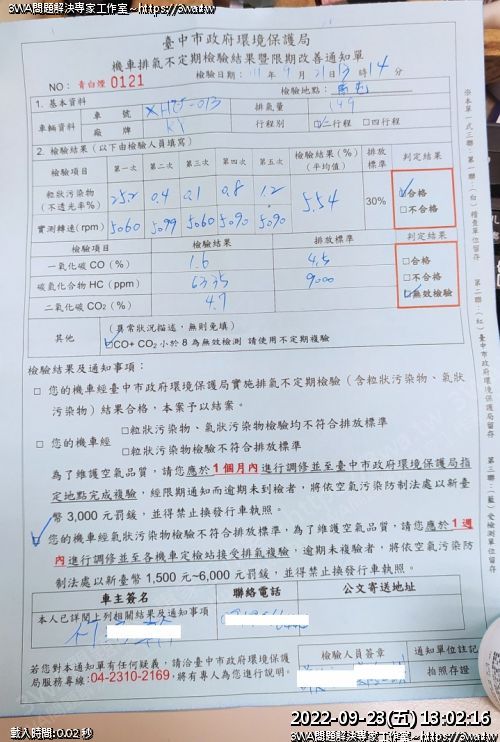 3WA問題解決專家工作室~https://3wa.tw
3WA問題解決專家工作室~https://3wa.tw
臺中市政府環境保護局
機車排氣不定期檢驗結果暨限期改善通知單
NO：青白煙0121
檢驗日期：111年9月21日13時14分
1. 基本資料
檢驗地點：南屯
車輛資料 車號 排氣量 149
廠牌 KY 行程別 ☑二行程 □四行程
2. 檢驗結果（以下由檢驗人員填寫）
檢驗項目 第一次 第二次 第三次 第四次 第五次 檢驗結果(%)(平均值) 排放標準 判定結果
粒狀污染物(不透光率%) 25.2 0.4 0.1 0.8 1.2 5.54 30% ☑合格 □不合格
實測轉速(rpm) 5060 5099 5060 5090 5090
檢驗項目 檢驗結果 排放標準 判定結果
一氧化碳 CO (%) 1.6 4.5 □合格
碳氫化合物 HC (ppm) 6335 9000 □不合格
二氧化碳 CO₂ (%) 4.7 ☑無效檢驗
其他 (異常狀況描述，無則免填)
☑CO+ CO₂ 小於 8 為無效檢測 請使用不定期複驗
檢驗結果及通知事項：
□ 您的機車經臺中市政府環境保護局實施排氣不定期檢驗（含粒狀污染物、氣狀
污染物）結果合格，本案予以結案。
□ 您的機車經 □粒狀污染物、氣狀污染物檢驗均不符合排放標準
□粒狀污染物檢驗不符合排放標準
為了維護空氣品質，請您應於1個月內進行調修並至臺中市政府環境保護局指
定地點完成複驗，經限期通知而逾期未到檢者，將依空氣污染防制法處以新臺
幣 3,000 元罰鍰，並得禁止換發行車執照。
☑ 您的機車經氣狀污染物檢驗不符合排放標準，為了維護空氣品質，請您應於1週
內進行調修並至各機車定檢站接受排氣複驗，逾期未複驗者，將依空氣污染防
制法處以新臺幣 1,500 元~6,000 元罰鍰，並得禁止換發行車執照。
車主簽名 聯絡電話 公文寄送地址
本人已詳閱上列相關結果及通知事項
若您對本通知單有任何疑義，請洽臺中市政府環境保護
局服務專線:04-2310-2169，將有專人為您進行說明。
檢驗人員簽章 通知單位註記
拍照存證
※本單一式三聯：第一聯：(白)稽查單位留存 第二聯：(紅)臺中市政府環境保護局留存 第三聯：(黃)受檢測單位留存
2022-09-23(五) 13:02:16
載入時間:0.02 秒
3WA問題解決專家工作室~https://3wa.tw
3WA問題解決專家工作室~https://3wa.tw